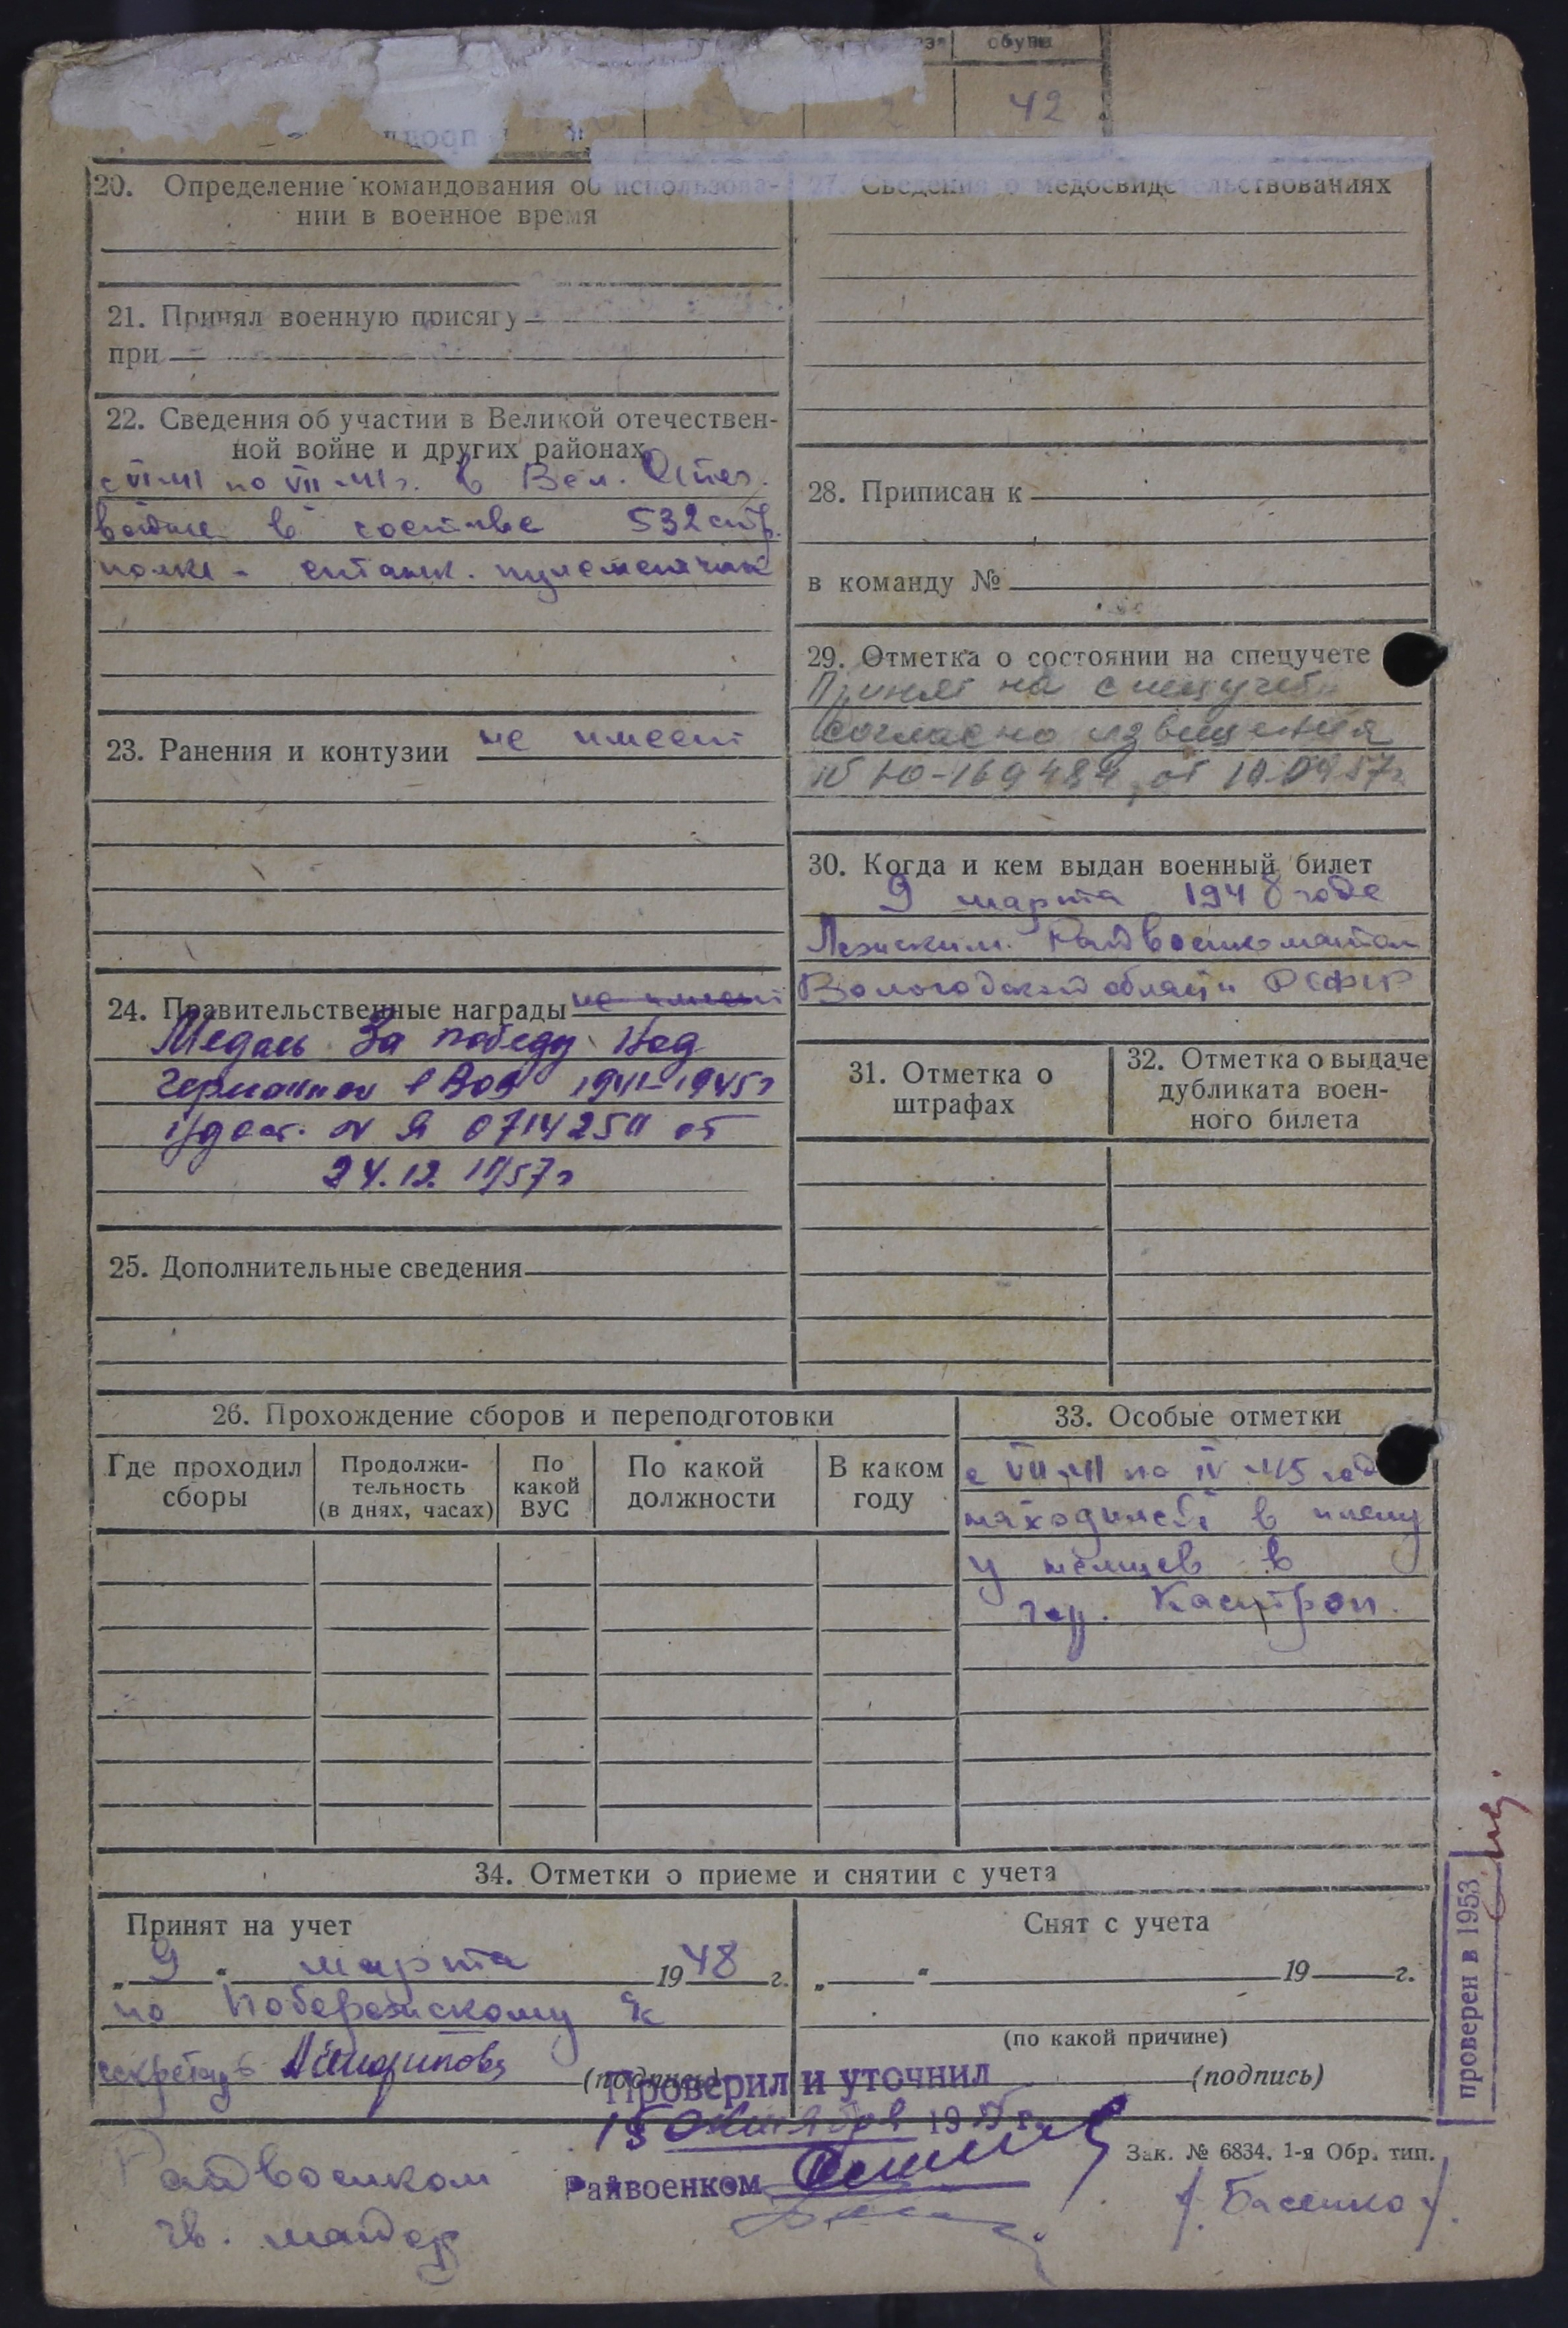 обуви
2 42
20. Определение командования об использова-
нии в военное время
21. Принял военную присягу
при
22. Сведения об участии в Великой отечествен-
ной войне и других районах
с VI-41 по VII-41 г. в Вел. Отеч.
войне в составе 532 стр.
полка - станк. пулеметчик
23. Ранения и контузии не имеет
24. Правительственные награды не имеет
Медаль За победу над
Германией в ВОВ 1941-1945 г
Удост. № Я 0714250 от
24.12. 1957 г
25. Дополнительные сведения
27. Сведения о медосвидетельствованиях
28. Приписан к
в команду №
29. Отметка о состоянии на спецучете
Принят на спецучет
согласно извещения
№ Ю-169484 от 10.0957г.
30. Когда и кем выдан военный билет
9 марта 1948 года
Лежским Райвоенкоматом
Вологодской области РСФСР
31. Отметка о
штрафах
32. Отметка о выдаче
дубликата воен-
ного билета
26. Прохождение сборов и переподготовки
Где проходил
сборы
Продолжи-
тельность
(в днях, часах)
По
какой
ВУС
По какой
должности
В каком
году
33. Особые отметки
с VII-41 по IV-45 год
находился в плену
у немцев в
гор. Кастроп.
34. Отметки о приеме и снятии с учета
Принят на учет
„ 9 “ марта 1948 г.
по Побережскому
секретарь (подпись)
Снят с учета
„ “ 19 г.
(по какой причине)
(подпись)
Проверил и уточнил
15 октября 195 г.
Райвоенком
Зак. № 6834. 1-я Обр. тип.
Райвоенком
гв. майор
/Басенко/.
проверен в 1953